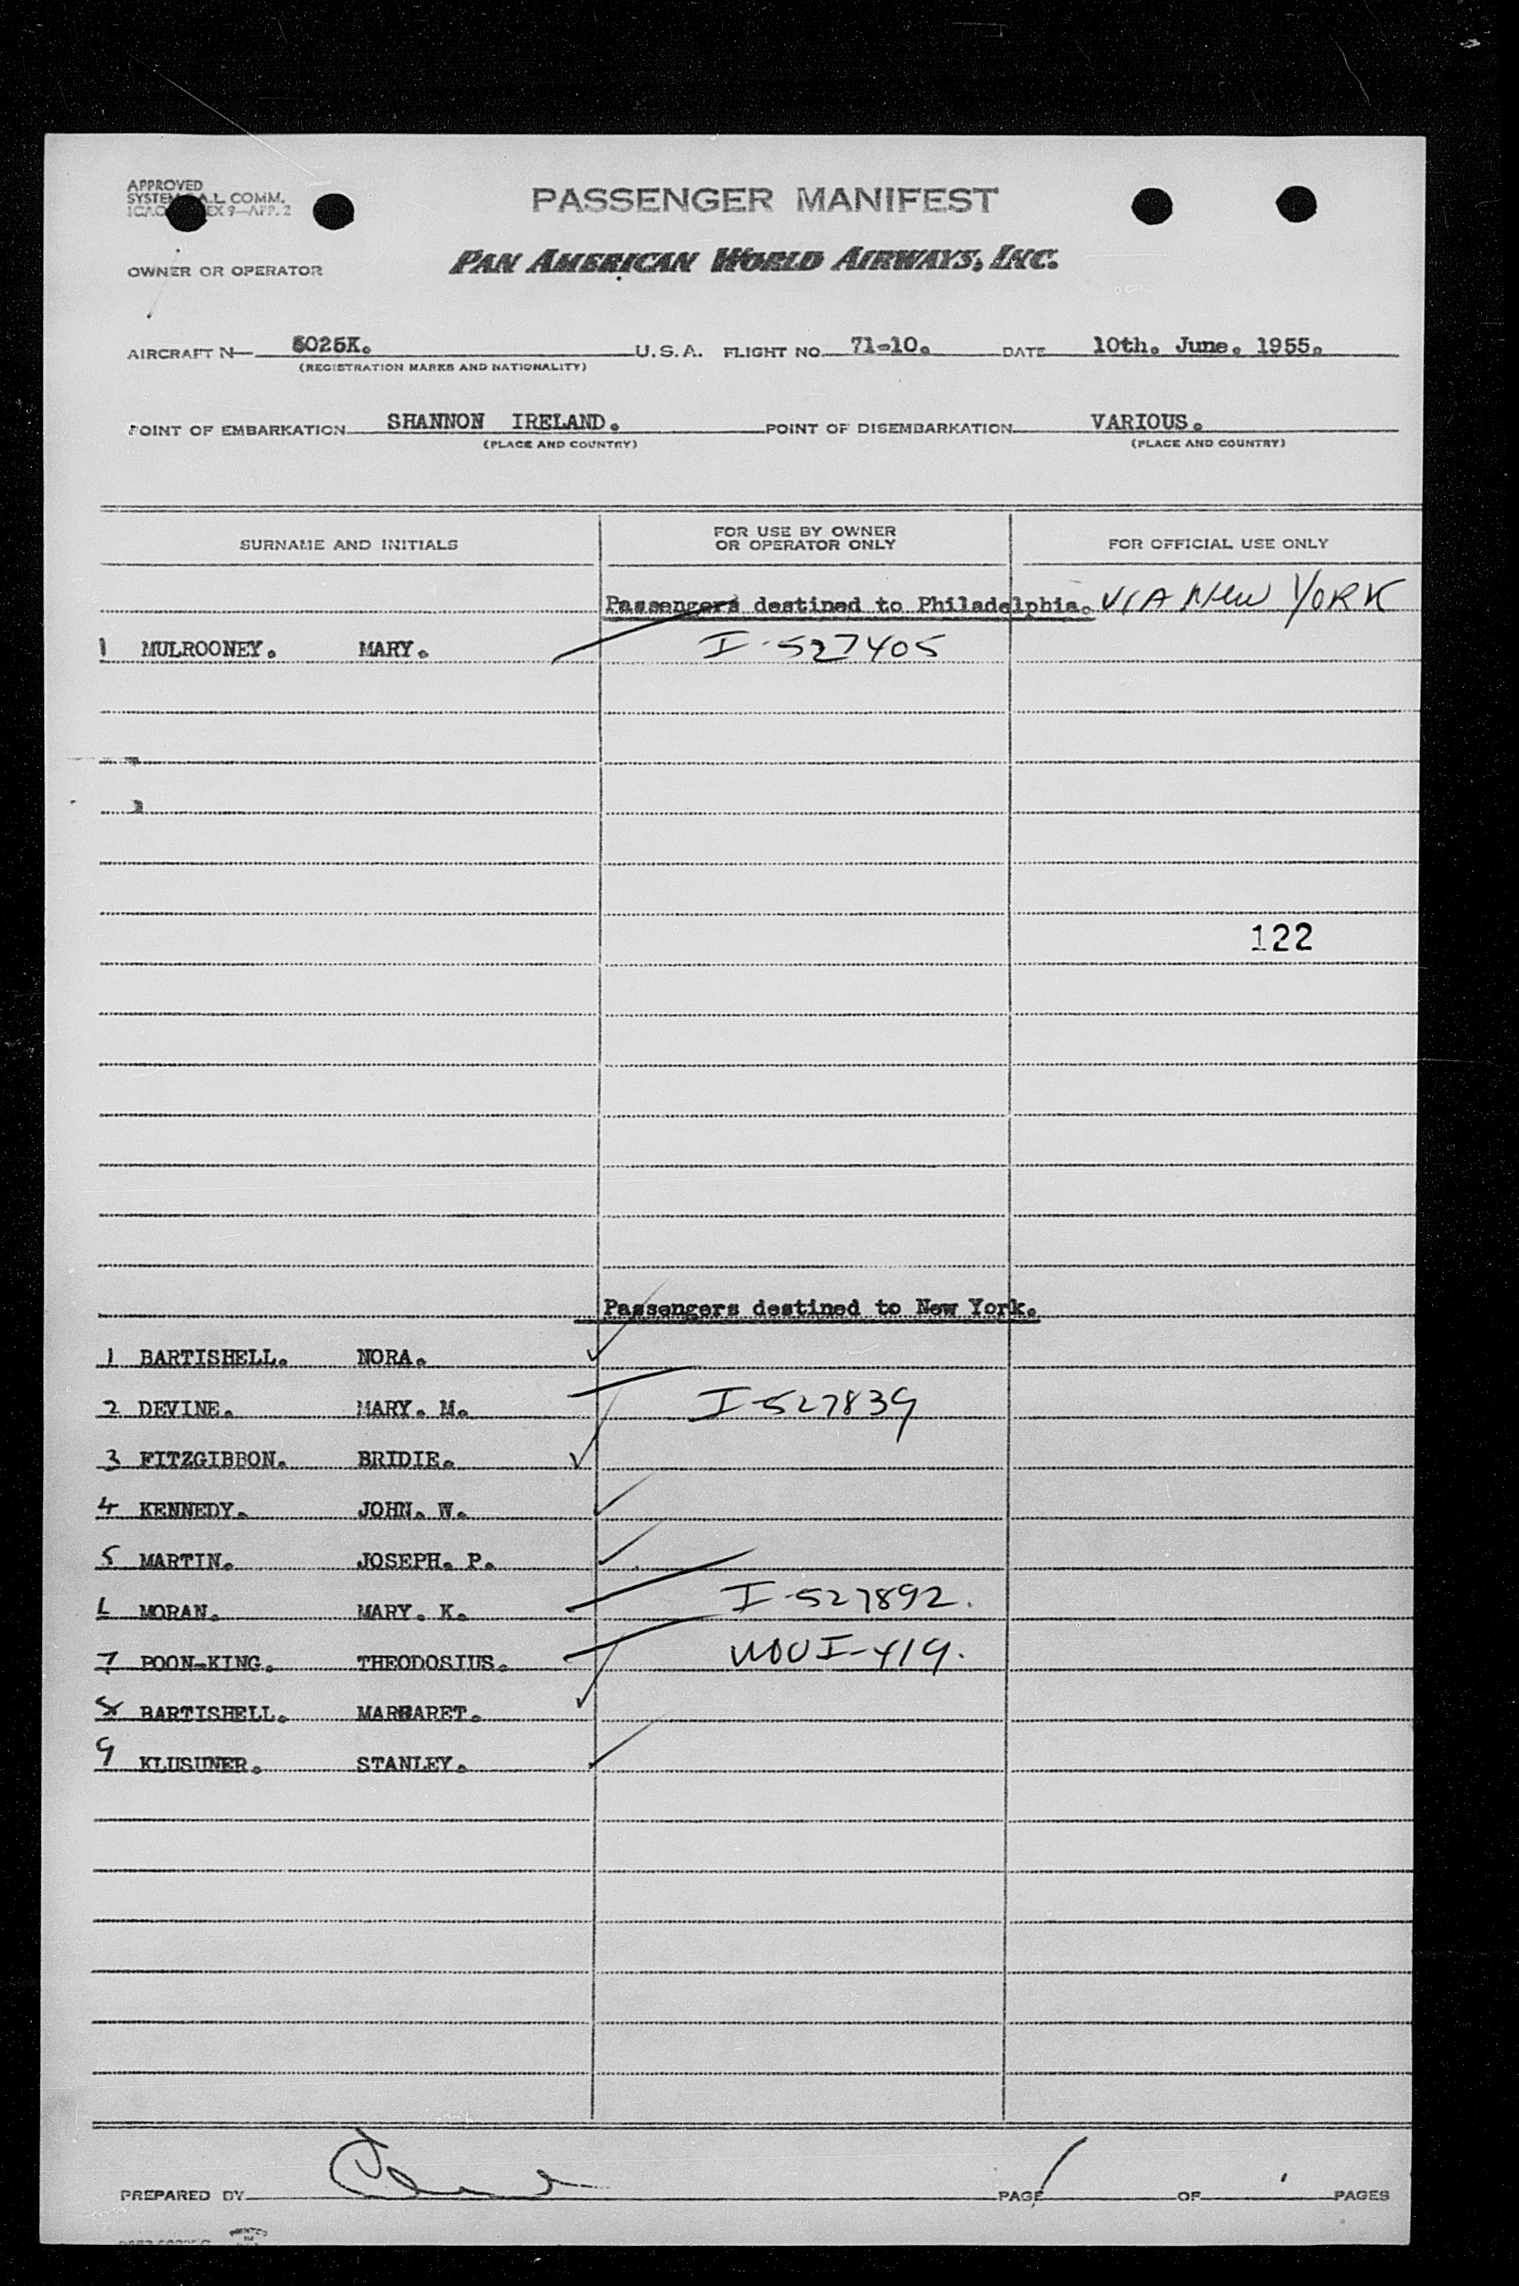 APPROVED
SYSTEM F.A.L. COMM.
ICAO EX 9—APP. 2
PASSENGER MANIFEST
OWNER OR OPERATOR PAN AMERICAN WORLD AIRWAYS, INC.
AIRCRAFT N— 6025K. U.S.A. FLIGHT NO. 71-10. DATE 10th. June. 1955.
(REGISTRATION MARKS AND NATIONALITY)
POINT OF EMBARKATION SHANNON IRELAND. POINT OF DISEMBARKATION VARIOUS.
(PLACE AND COUNTRY) (PLACE AND COUNTRY)
SURNAME AND INITIALS FOR USE BY OWNER OR OPERATOR ONLY FOR OFFICIAL USE ONLY
Passengers destined to Philadelphia. VIA NEW YORK
1 MULROONEY. MARY. I-527405
122
Passengers destined to New York.
1 BARTISHELL. NORA.
2 DEVINE. MARY. M. I-527839
3 FITZGIBBON. BRIDIE.
4 KENNEDY. JOHN. W.
5 MARTIN. JOSEPH. P.
6 MORAN. MARY. K. I-527892.
7 POON-KING. THEODOSIUS. I-419.
8 BARTISHELL. MARGARET.
9 KLUSUNER. STANLEY.
PREPARED BY PAGE 1 OF PAGES
PRINTED